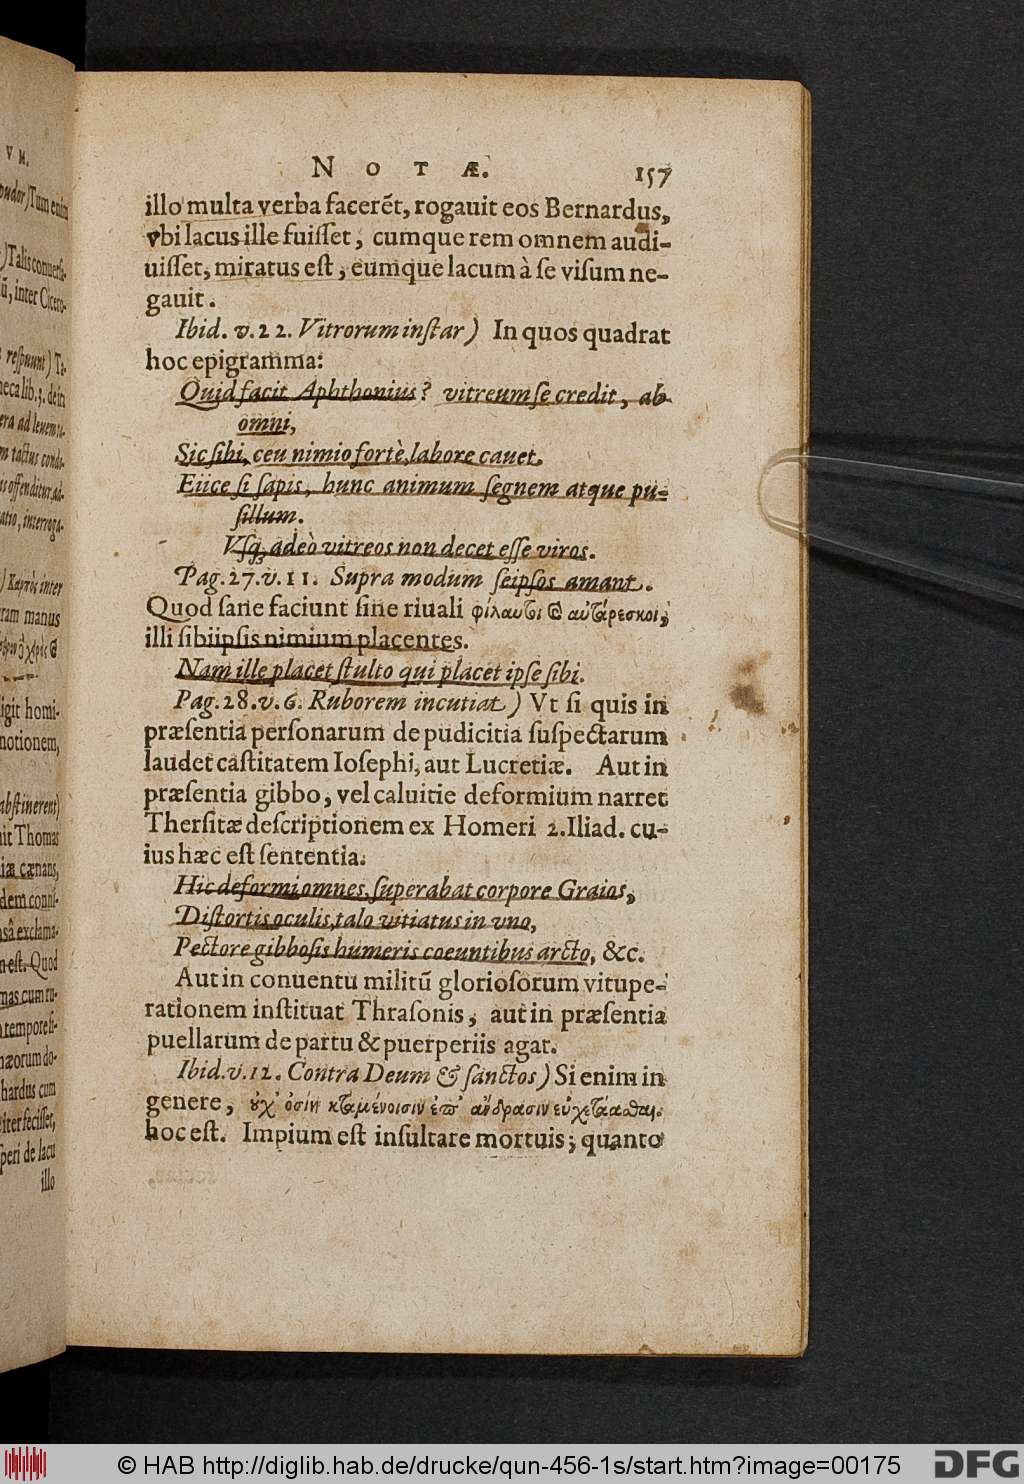 V M.
pudor) Tum enim
) Talis conuers-
ũ, inter Cicero-
respuunt) Ta-
neca lib. 3. de ir
era ad leuem ta-
m tactus condi-
us offenditur, ad-
atio, interroga-
) Καρπὸς inter
ram manus
igit homi-
notionem,
abstinerent)
it Thomas
iæ cænans,
dem connî-
sâ exclama-
n est. Quod
mas cum ru-
tempore si-
hæorum do-
hardus cum
iter fecisset,
speri de lacu
illo
NOTÆ. 157
illo multa verba facerẽt, rogauit eos Bernardus,
vbi lacus ille fuisset, cumque rem omnem audi-
uisset, miratus est, eumque lacum à se visum ne-
gauit.
Ibid. v. 22. Vitrorum instar) In quos quadrat
hoc epigramma:
Quid facit Aphthonius? vitreum se credit, ab
omni,
Sic sibi, ceu nimio fortè, labore cauet.
Eiice si sapis, hunc animum segnem atque pu-
sillum.
Vsq; adeò vitreos non decet esse viros.
Pag. 27. v. 11. Supra modum seipsos amant.
Quod sane faciunt sine riuali φίλαυτοι & αὐτάρεσκοι,
illi sibiipsis nimium placentes.
Nam ille placet stulto qui placet ipse sibi.
Pag. 28. v. 6. Ruborem incutiat) Vt si quis in
præsentia personarum de pudicitia suspectarum
laudet castitatem Iosephi, aut Lucretiæ. Aut in
præsentia gibbo, vel caluitie deformium narret
Thersitæ descriptionem ex Homeri 2. Iliad. cu-
ius hæc est sententia:
Hic deformi omnes, superabat corpore Graios,
Distortis oculis, talo vitiatus in vno,
Pectore gibbosis humeris coeuntibus arcto, &c.
Aut in conuentu militũ gloriosorum vitupe-
rationem instituat Thrasonis, aut in præsentia
puellarum de partu & puerperiis agat.
Ibid. v. 12. Contra Deum & sanctos) Si enim in
genere, οὐχ' ὁσίη κταμένοισιν ἐπ' ἀνδράσιν εὐχετάασθαι.
hoc est. Impium est insultare mortuis; quanto
© HAB http://diglib.hab.de/drucke/qun-456-1s/start.htm?image=00175
DFG